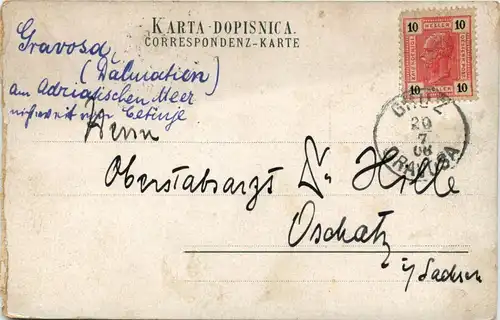 KARTA-DOPISNICA.
CORRESPONDENZ-KARTE
Gravosa
(Dalmatien)
am Adriatischen Meer
nicht weit von Cetinje
10 HELLER 10
10 10
GRUZ
20
7
08
GRAVOSA
Herrn
Oberstabsarzt Dr Hille
Oschatz
i/Sachsen